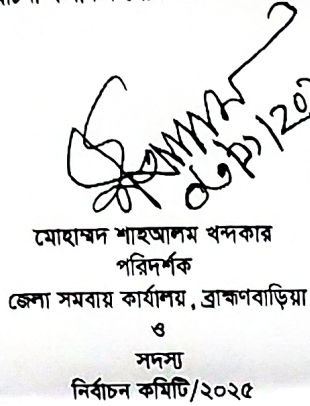 মোহাম্মদ শাহআলম খন্দকার
পরিদর্শক
জেলা সমবায় কার্যালয়, ব্রাহ্মণবাড়িয়া
ও
সদস্য
নির্বাচন কমিটি/২০২৫